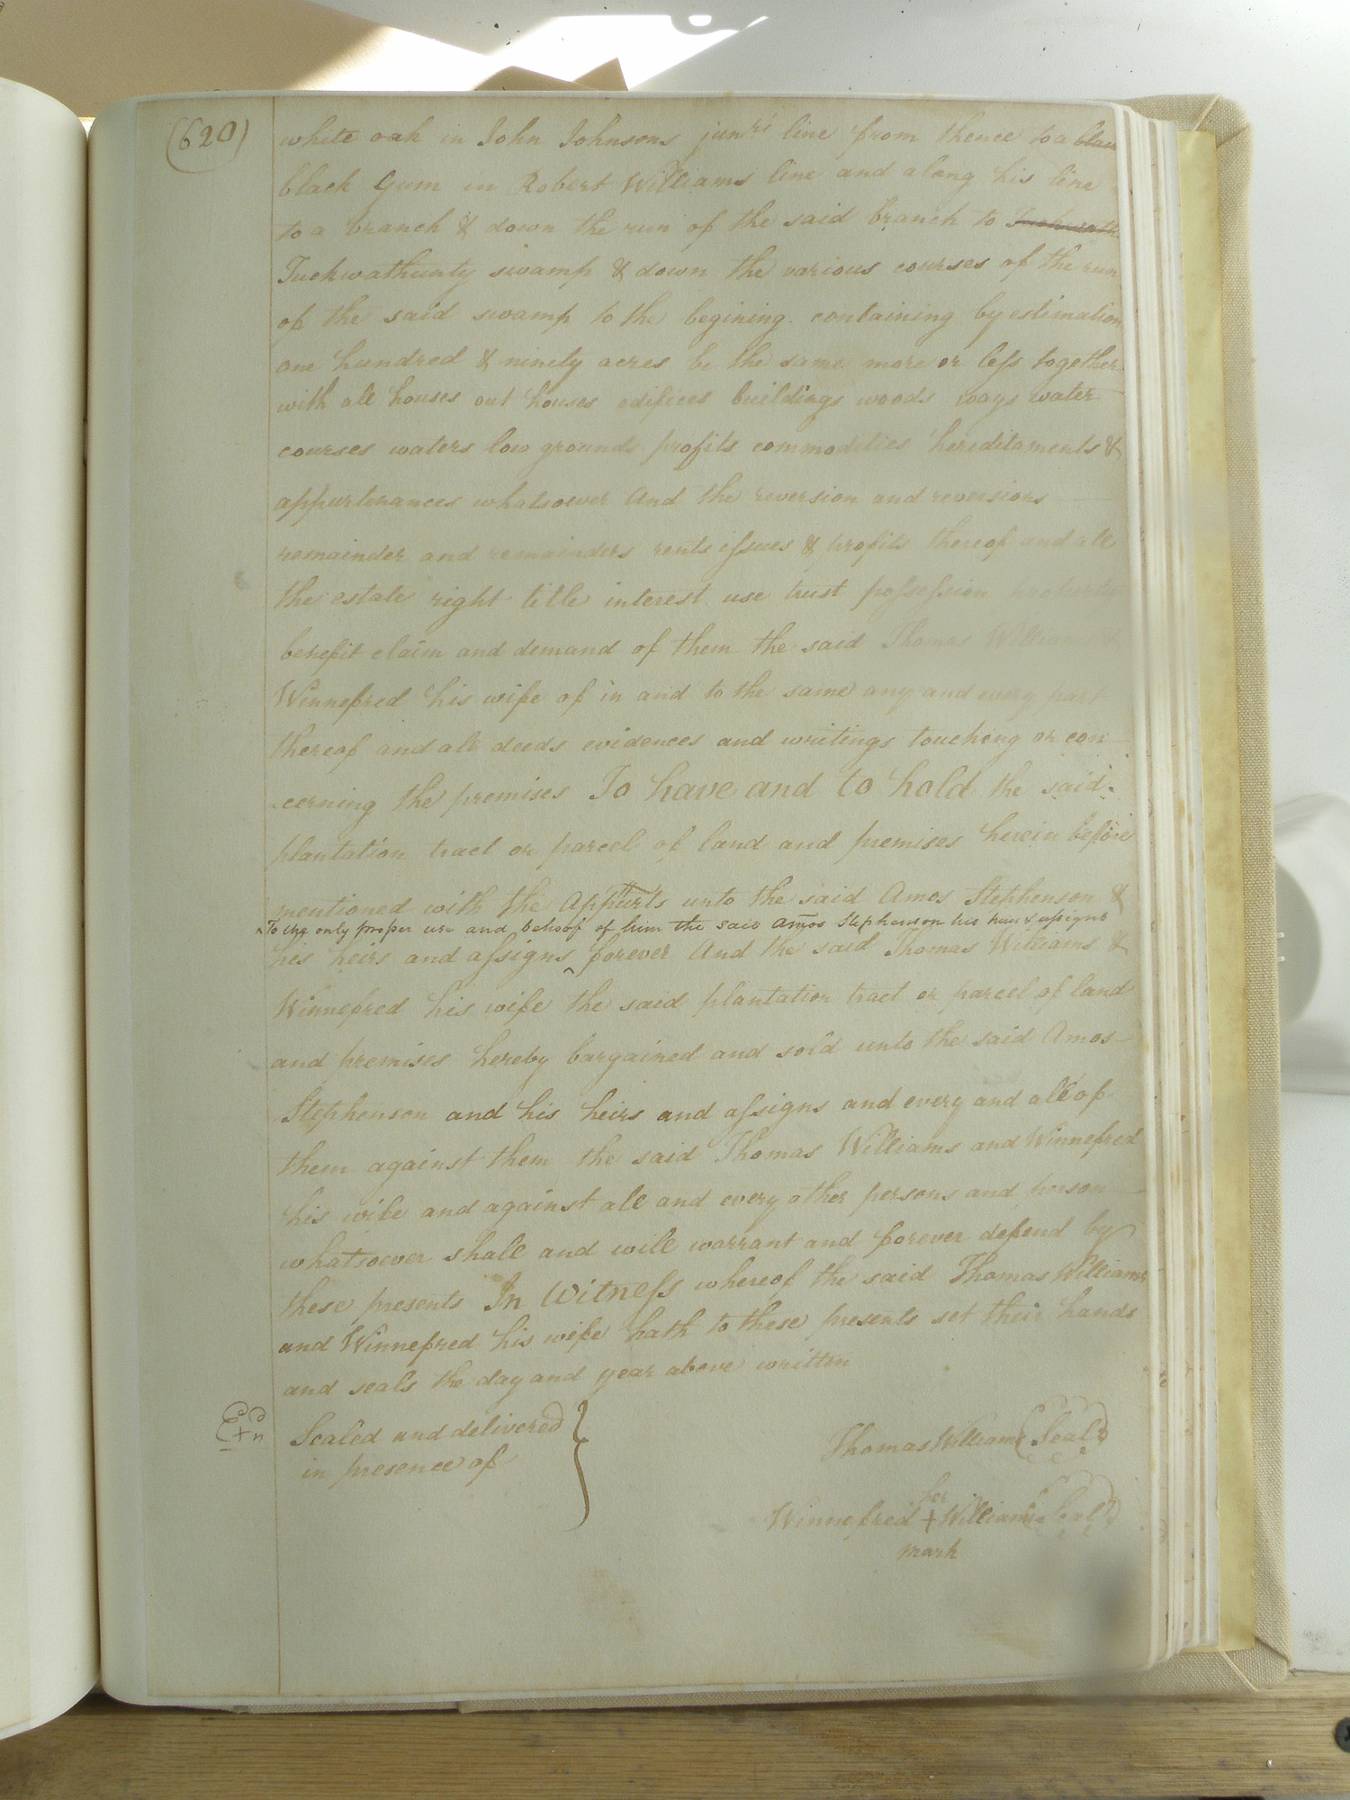 (620)
white oak in John Johnsons junrs line from thence to a
black Gum in Robert Williams line and along his line
to a branch & down the run of the said branch to
Tuckwathunty swamp & down the various courses of the run
of the said swamp to the begining. containing by estimation
one hundred & ninety acres be the same more or less together
with all houses out houses edifices buildings woods ways water
courses waters low grounds profits commodities hereditaments &
appurtenances whatsoever And the reversion and reversions
remainder and remainders rents issues & profits thereof and all
the estate right title interest use trust possession
benefit claim and demand of them the said Thomas Williams
Winnefred his wife of in and to the same any and every part
thereof and all deeds evidences and writings touching or con
cerning the premises To have and to hold the said
plantation tract or parcel of land and premises herein before
mentioned with the Appurts unto the said Amos Stephenson &
To the only proper use and behoof of him the said Amos Stephenson his heirs & assigns
his heirs and assigns ^ forever And the said Thomas Williams &
Winnefred his wife the said plantation tract or parcel of land
and premises hereby bargained and sold unto the said Amos
Stephenson and his heirs and assigns and every and all of
them against them the said Thomas Williams and Winnefred
his wife and against all and every other persons and person
whatsoever shall and will warrant and forever defend by
these presents In Witness whereof the said Thomas Williams
and Winnefred his wife hath to these presents set their hands
and seals the day and year above written
Sealed and delivered } Thomas Williams (Seal)
in presence of
her
Winnefred + Williams (Seal)
mark